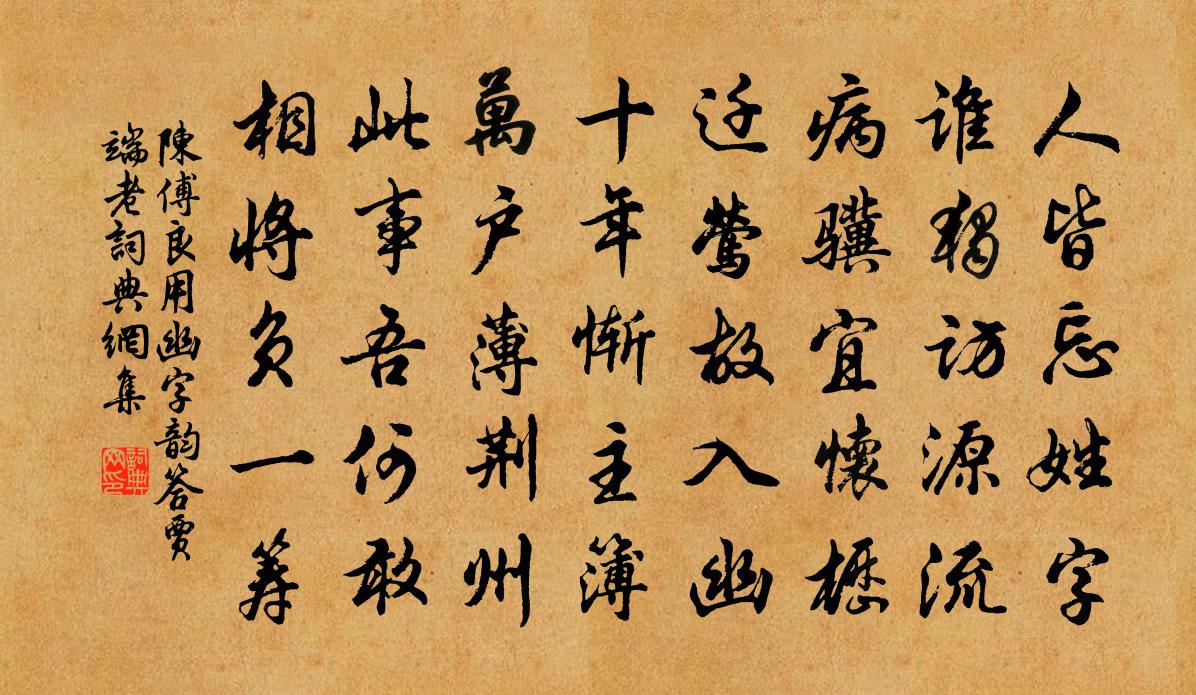 人皆忘姓字
誰獨訪源流
病驥宜懷櫪
迁鶯故入幽
十年慚主簿
萬戶薄荊州
此事吾何敢
相將負一籌
陳傅良用幽字韵答賈
端老詞典網集
詞典网印